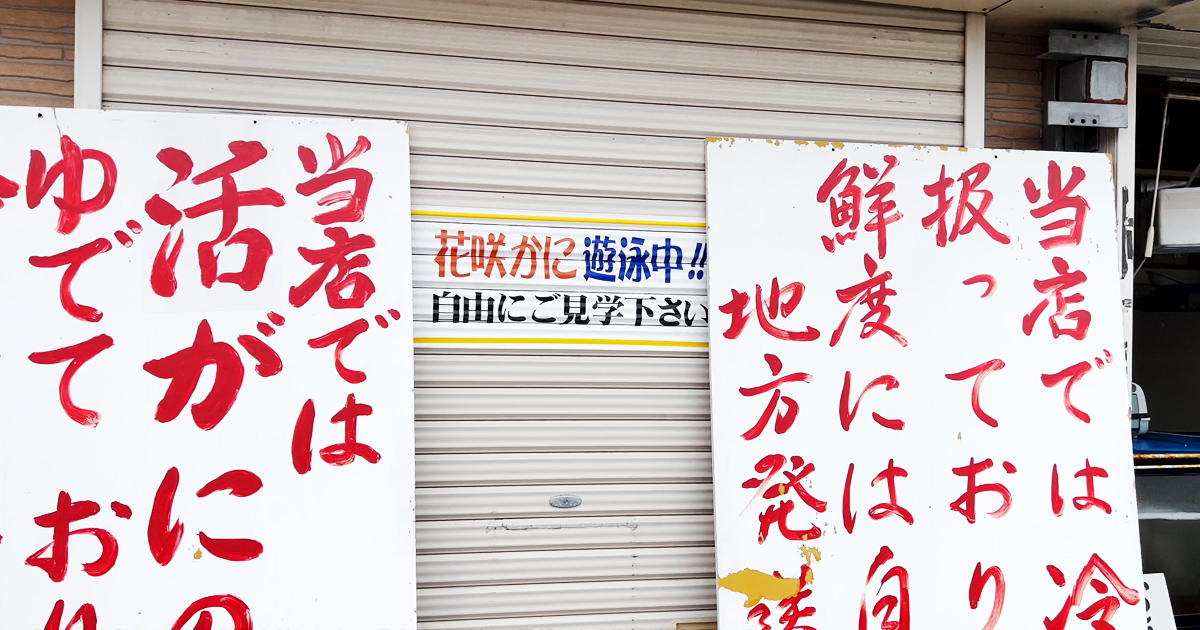 当店では
活がにの
ゆでて おり
花咲かに遊泳中!!
自由にご見学下さい
当店では冷
扱っており
鮮度には自
地方発送